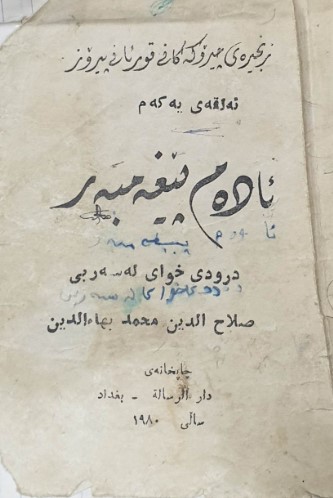 زنجیرەی چیرۆکەکانی قورئانی پیرۆز
ئەڵقەی یەکەم
ئادەم پێغەمبەر
ئادەم پێغەمبەر
درودی خوای لەسەربێ
صلاح الدین محمد بهاءالدین
چاپخانەی
دار الرسالة - بغداد
ساڵی ١٩٨٠